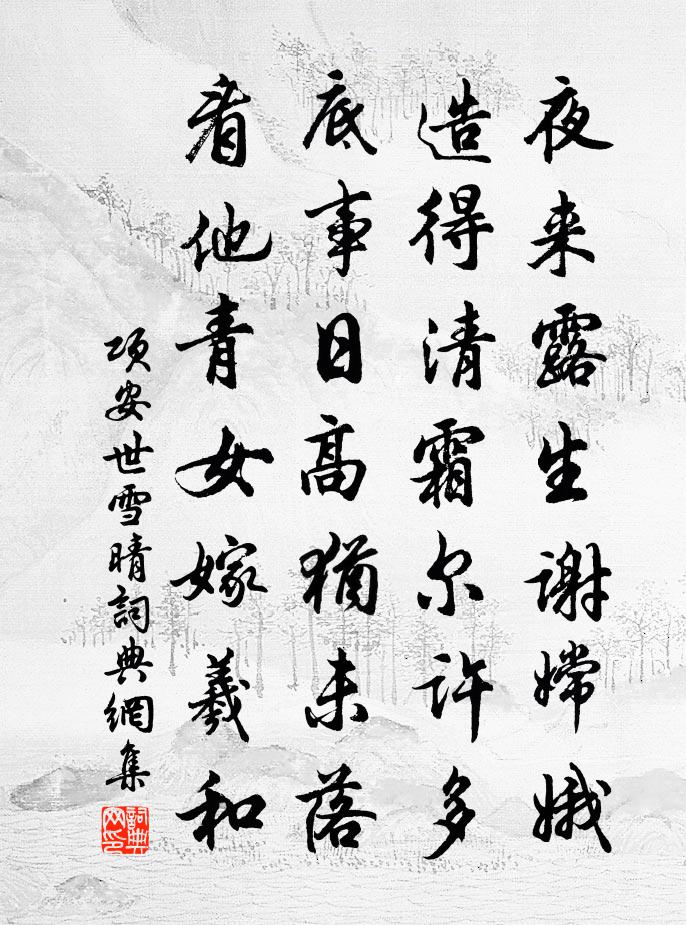 夜来露生謝嫦娥
造得清霜尔許多
底事日高猶未落
看他青女嫁羲和
项安世雪晴詞典網集
詞典网印